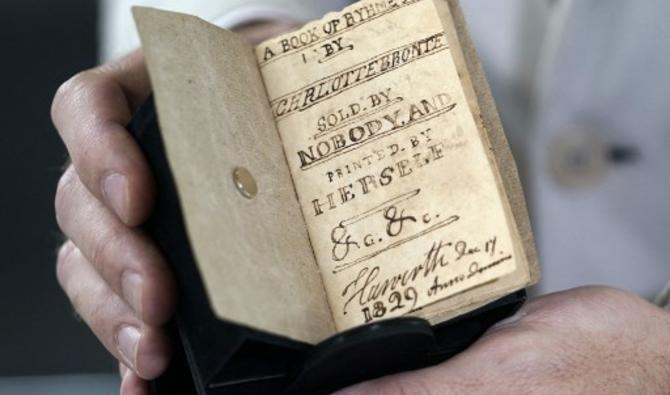 A BOOK OF RYHMES
BY
CHARLOTTE BRONTE
SOLD. BY.
NOBODY. AND
PRINTED. BY
HERSELF
&c. &c.
Haworth Dec 17.
1829 Anno Domini